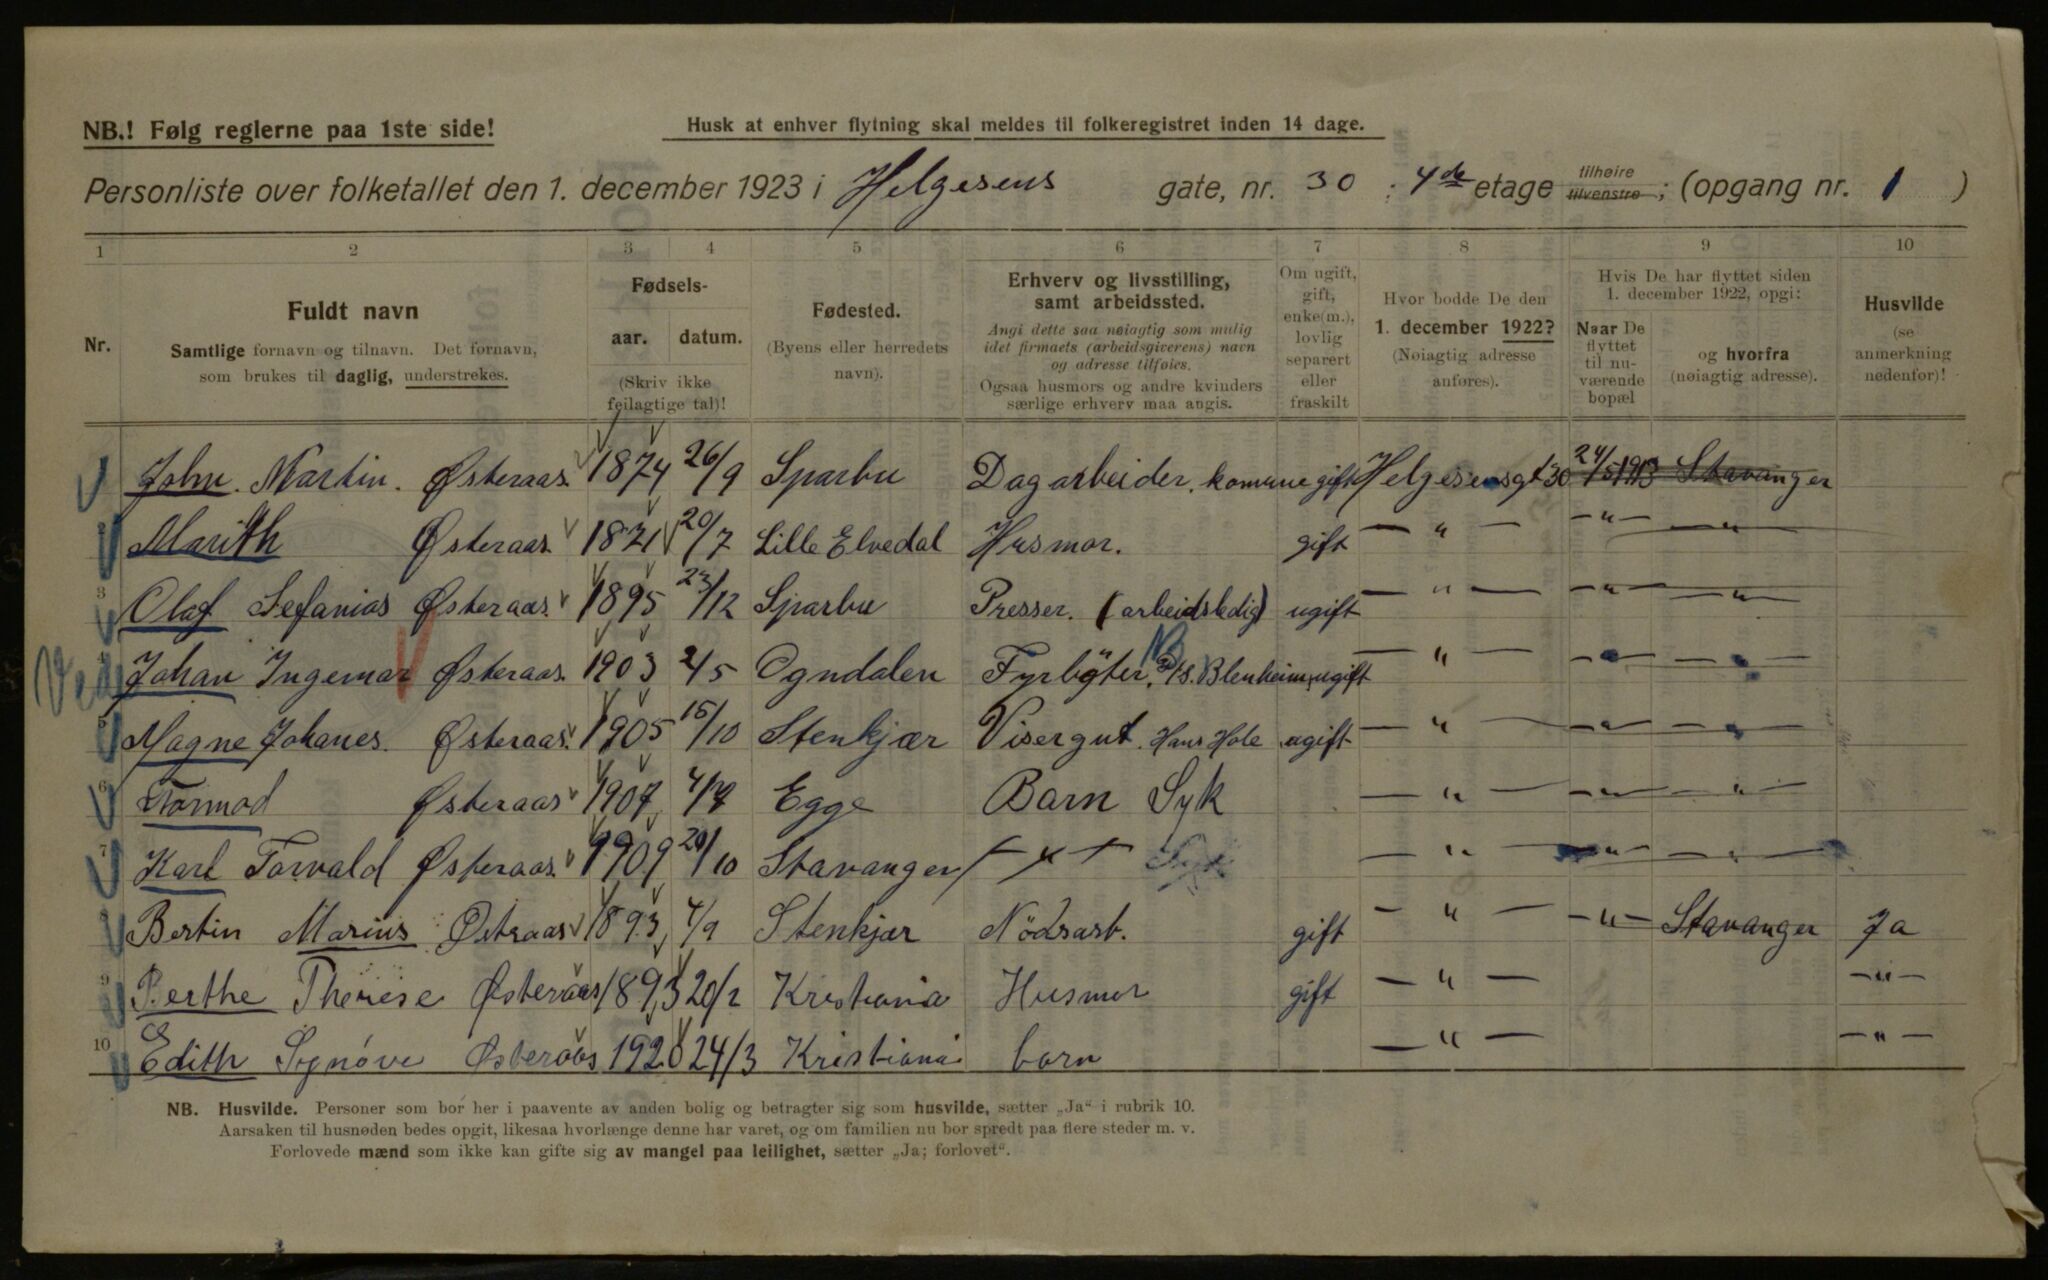 NB.! Følg reglerne paa 1ste side!
Husk at enhver flytning skal meldes til folkeregistret inden 14 dage.
Personliste over folketallet den 1. december 1923 i Helgesens gate, nr. 30 ; 4de etage tilhøire tilvenstre ; (opgang nr. 1 )
1 2 3 4 5 6 7 8 9 10
Nr.
Fuldt navn
Samtlige fornavn og tilnavn. Det fornavn,
som brukes til daglig, understrekes.
Fødsels-
aar. datum.
(Skriv ikke
feilagtige tal)!
Fødested.
(Byens eller herredets
navn).
Erhverv og livsstilling,
samt arbeidssted.
Angi dette saa nøiagtig som mulig
idet firmaets (arbeidsgiverens) navn
og adresse tilføies.
Ogsaa husmors og andre kvinders
særlige erhverv maa angis.
Om ugift,
gift,
enke(m.),
lovlig
separert
eller
fraskilt
Hvor bodde De den
1. december 1922?
(Nøiagtig adresse
anføres).
Hvis De har flyttet siden
1. december 1922, opgi:
Naar De
flyttet
til nu-
værende
bopæl
og hvorfra
(nøiagtig adresse).
Husvilde
(se
anmerkning
nedenfor)!
John. Martin. Østeraas. 1874 26/9 Sparbu Dagarbeider. komune gift Helgesensgt 30 24/5 1913 Stavanger
Marith Østeraas 1871 20/7 Lille Elvedal Husmor. gift — " — — " — — " —
3 Olaf Sefanias Østeraas. 1895 23/12 Sparbu Presser. (arbeidsledig) ugift — " — — " — — " —
4 Johan Ingemar Østeraas. 1903 2/5 Ogndalen Fyrbøter. NB D/S. Blenheim, ugift — " — — " — — " —
5 Magne Johanes. Østeraas. 1905 15/10 Stenkjær Visergut. Hans Hole ugift — " — — " — — " —
6 Tormod Østeraas 1907 Egge Barn Syk — " — — " — — " —
7 Karl Torvald Østeraas. 1909 20/10 Stavanger — " — — " — — " — — " —
8 Bertin Marius Østraas 1893 4/9 Stenkjær Nödsarb. gift — " — — " — Stavanger Ja
9 Berthe Therese Østeraas 1893 20/2 Kristiania Husmor gift — " — — " —
10 Edith Sognøve Østeraas 1920 24/3 Kristiania barn — " — — " —
NB. Husvilde. Personer som bor her i paavente av anden bolig og betragter sig som husvilde, sætter „Ja“ i rubrik 10.
Aarsaken til husnøden bedes opgit, likesaa hvorlænge denne har varet, og om familien nu bor spredt paa flere steder m. v.
Forlovede mænd som ikke kan gifte sig av mangel paa leilighet, sætter „Ja; forlovet“.